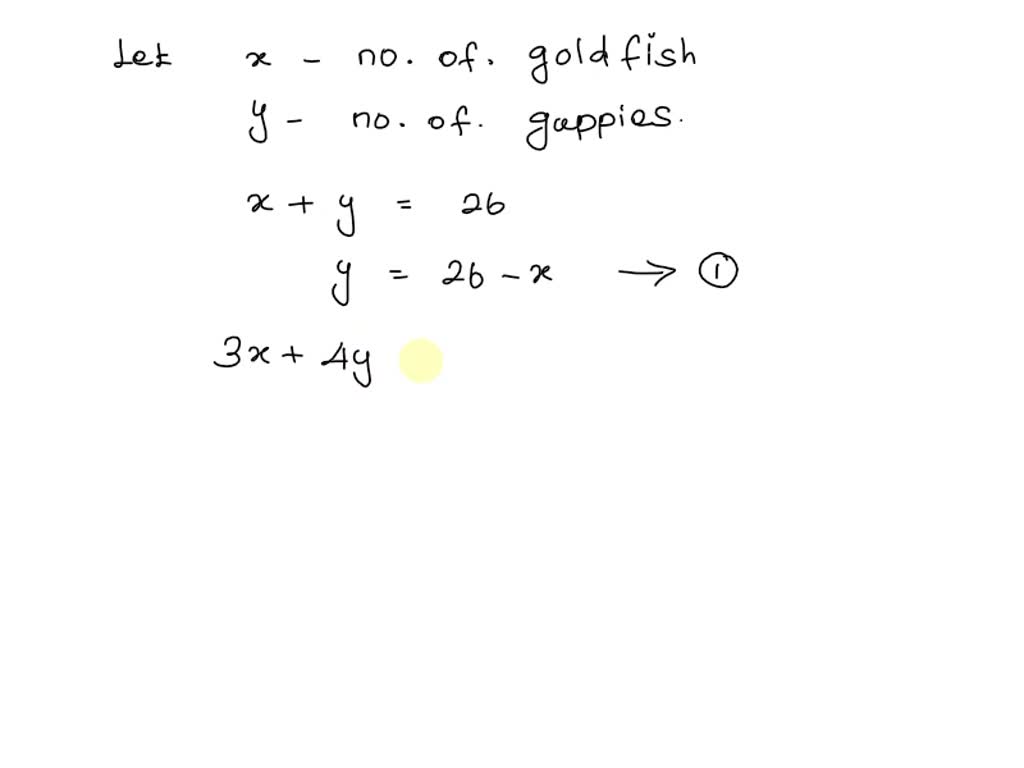 Let x - no. of. gold fish
y - no. of. guppies.
x + y = 26
y = 26 - x → ①
3x + 4y